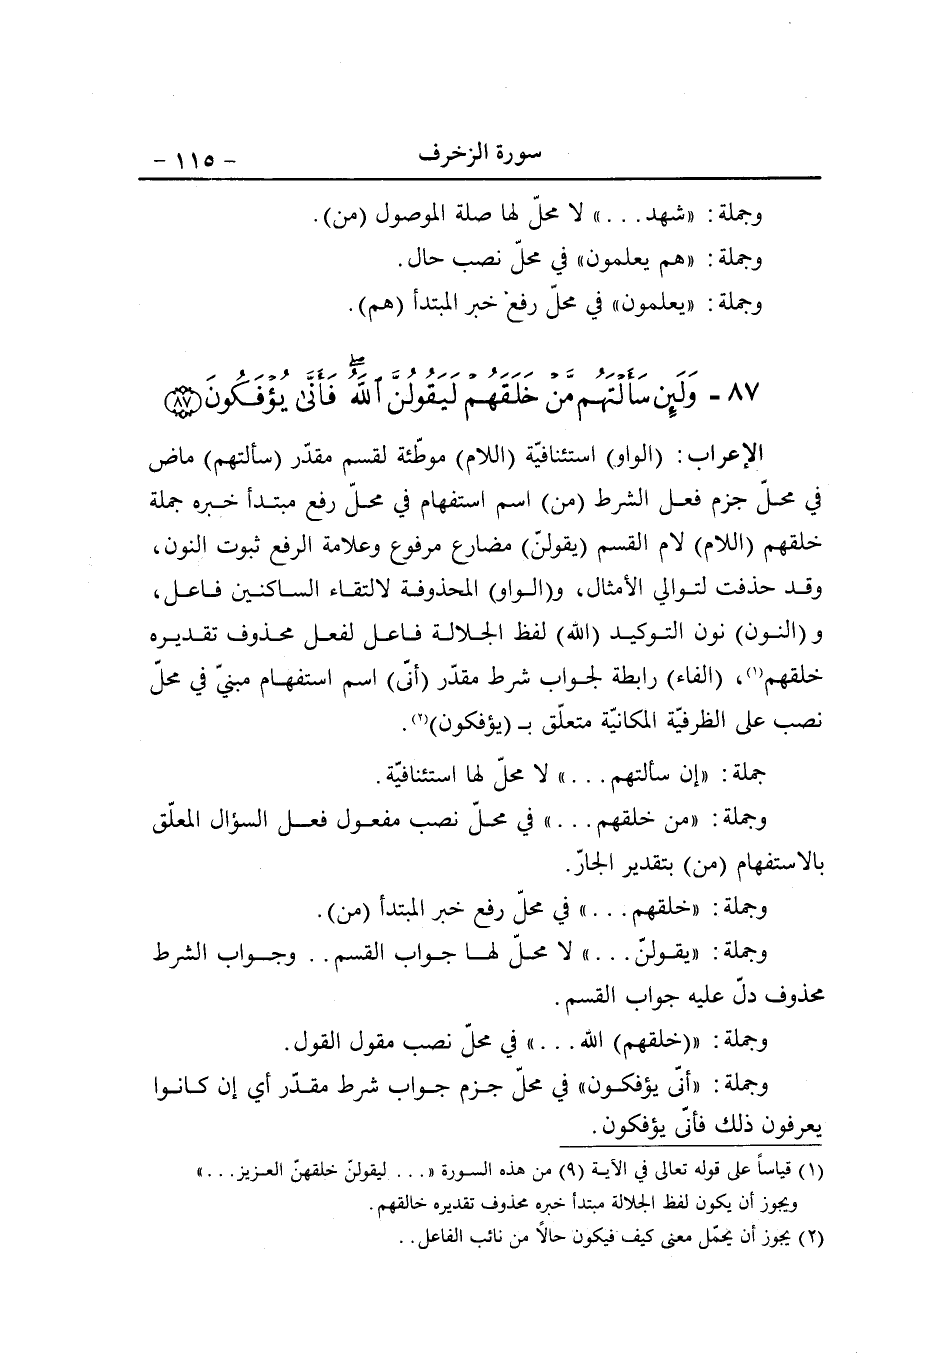 سورة الزخرف - ١١٥ -
وجملة: «شهد...» لا محلّ لها صلة الموصول (من).
وجملة: «هم يعلمون» في محلّ نصب حال.
وجملة: «يعلمون» في محلّ رفع خبر المبتدأ (هم).
٨٧ - وَلَئِن سَأَلْتَهُم مَّنْ خَلَقَهُمْ لَيَقُولُنَّ ٱللَّهُ ۖ فَأَنَّىٰ يُؤْفَكُونَ (٨٧)
الإعراب: (الواو) استئنافيّة (اللام) موطّئة لقسم مقدّر (سألتهم) ماض
في محلّ جزم فعل الشرط (من) اسم استفهام في محلّ رفع مبتدأ خبره جملة
خلقهم (اللام) لام القسم (يقولنّ) مضارع مرفوع وعلامة الرفع ثبوت النون،
وقد حذفت لتوالي الأمثال، و(الواو) المحذوفة لالتقاء الساكنين فاعل،
و (النون) نون التوكيد (الله) لفظ الجلالة فاعل لفعل محذوف تقديره
خلقهم(١)، (الفاء) رابطة لجواب شرط مقدّر (أنّى) اسم استفهام مبنيّ في محلّ
نصب على الظرفيّة المكانيّة متعلّق بـ (يؤفكون)(٢).
جملة: «إن سألتهم...» لا محلّ لها استئنافيّة.
وجملة: «من خلقهم...» في محلّ نصب مفعول فعل السؤال المعلّق
بالاستفهام (من) بتقدير الجارّ.
وجملة: «خلقهم...» في محلّ رفع خبر المبتدأ (من).
وجملة: «يقولنّ...» لا محلّ لها جواب القسم.. وجواب الشرط
محذوف دلّ عليه جواب القسم.
وجملة: «(خلقهم) الله...» في محلّ نصب مقول القول.
وجملة: «أنّى يؤفكون» في محلّ جزم جواب شرط مقدّر أي إن كانوا
يعرفون ذلك فأنّى يؤفكون.
(١) قياساً على قوله تعالى في الآية (٩) من هذه السورة «... ليقولنّ خلقهنّ العزيز...»
ويجوز أن يكون لفظ الجلالة مبتدأ خبره محذوف تقديره خالقهم.
(٢) يجوز أن يحمّل معنى كيف فيكون حالاً من نائب الفاعل..